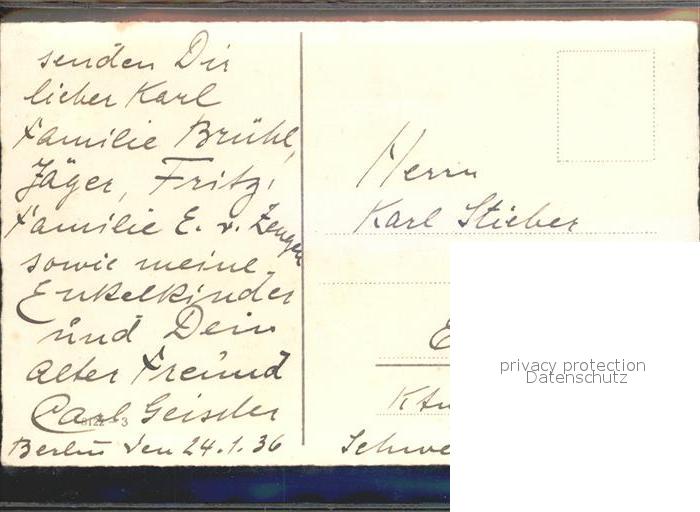 senden Dir
lieber Karl
Familie Brühl,
Jäger, Fritz,
Familie E. v. Zengen
sowie meine
Enkelkinder
und Dein
alter Freund
Carl Geissler
Berlin den 24.1.36
Herrn
Karl Stieber
E
Ktn
Schwe
privacy protection
Datenschutz